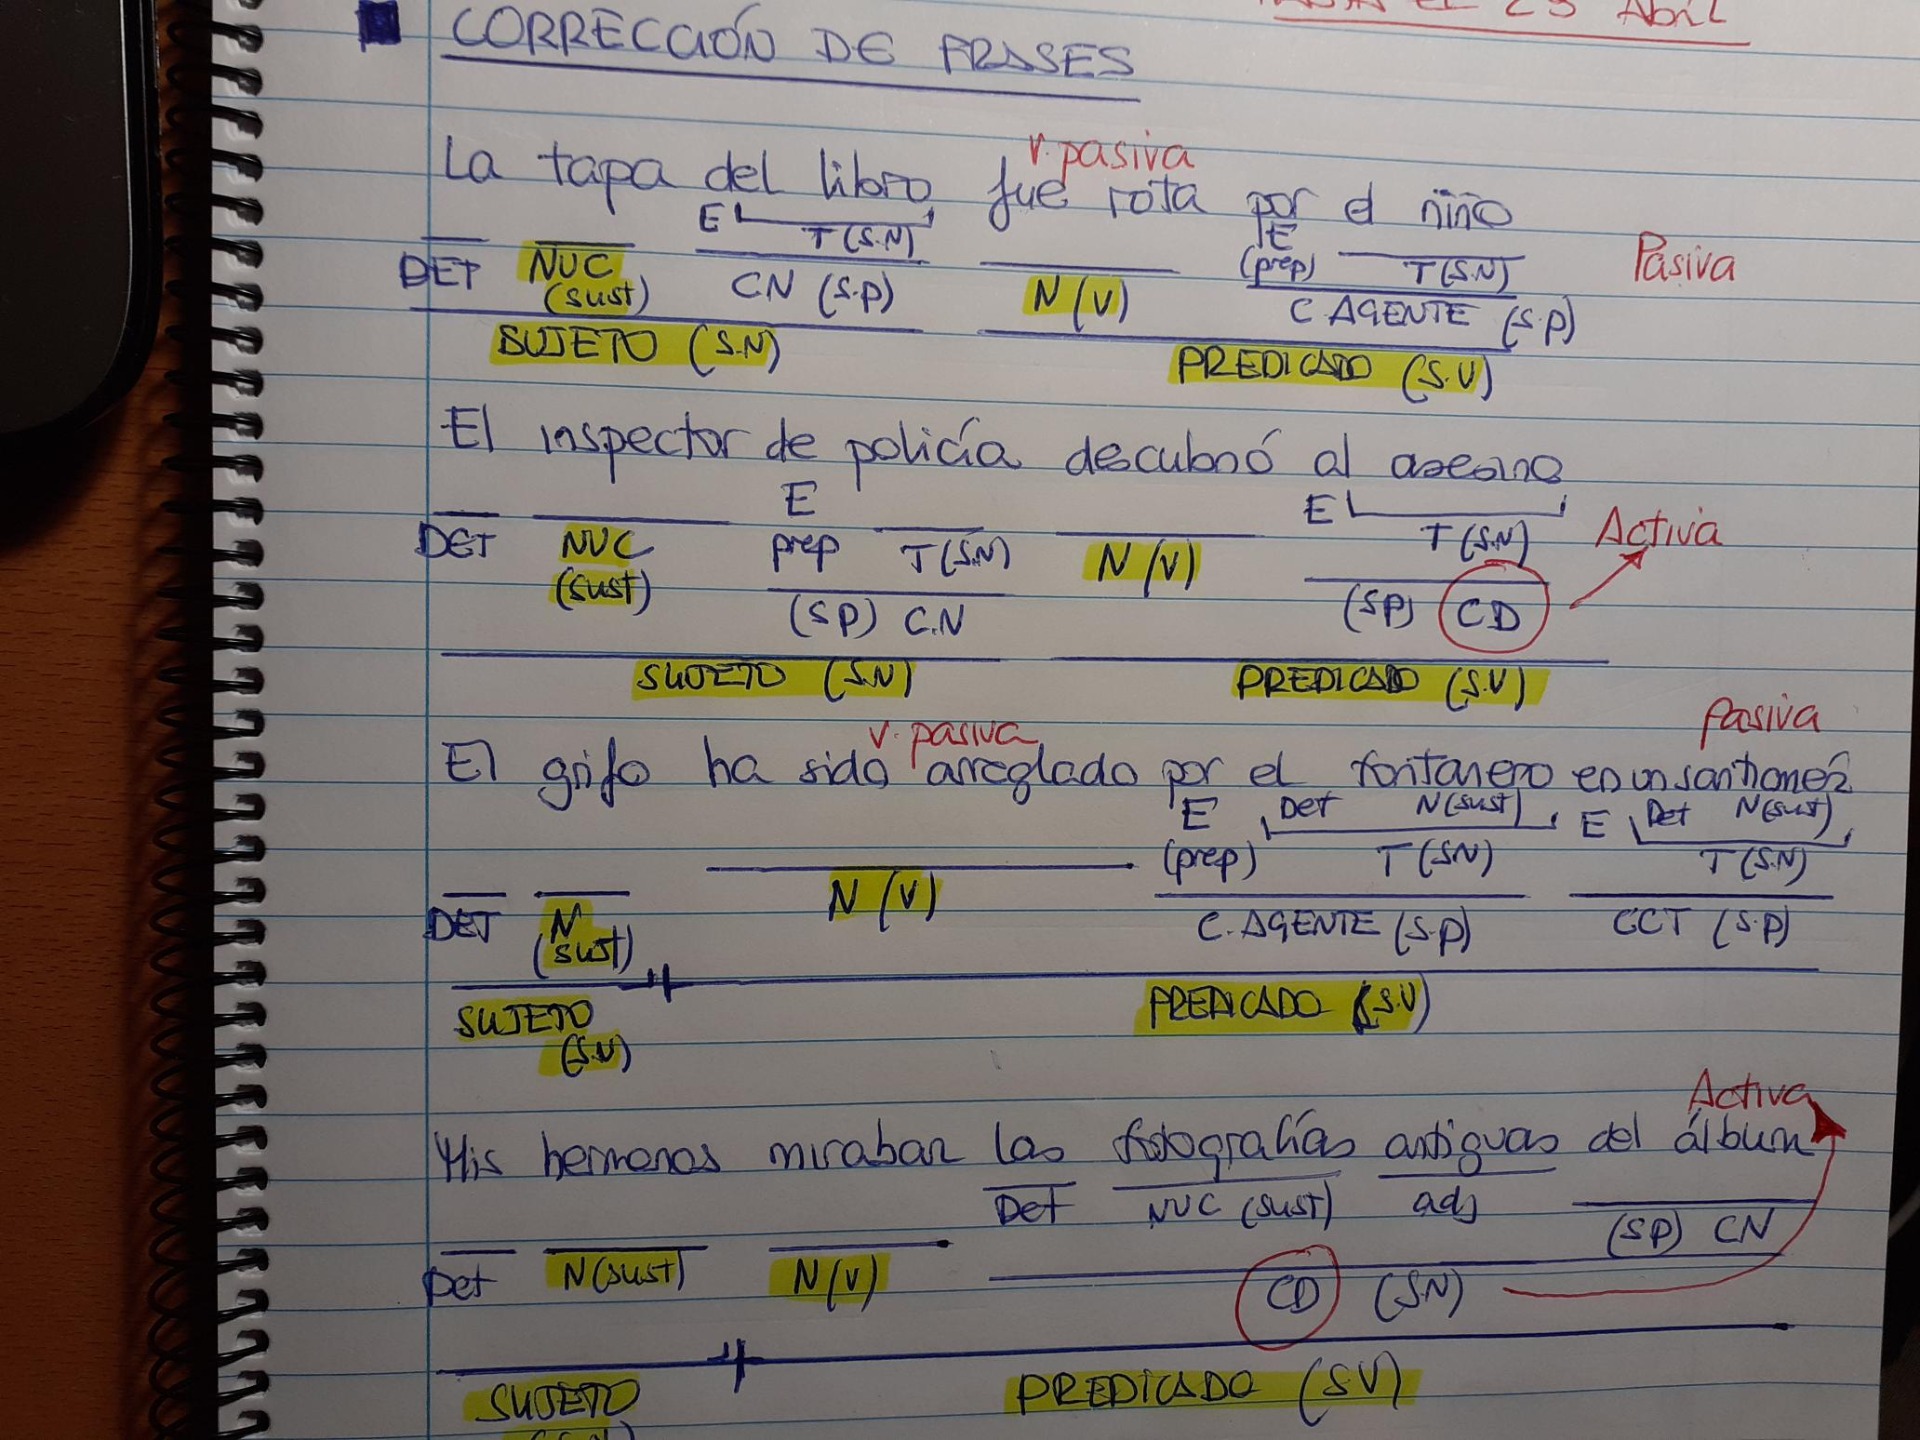 el 23 Abril
CORRECCIÓN DE FRASES
v. pasiva
La tapa del libro fue rota por el niño
E T (S.N) E
DET NUC (prep) T (S.N) Pasiva
(sust) CN (S.P) N (V) C. AGENTE (S.P)
SUJETO (S.N) PREDICADO (S.V)
El inspector de policía descubrió al asesino
E E
DET NUC prep T (S.N) N (V) T (S.N) Activa
(sust) (SP) C.N (SP) CD
SUJETO (S.N) PREDICADO (S.V)
v. pasiva Pasiva
El grifo ha sido arreglado por el fontanero en un santiamén
E Det N (sust) E Det N (sust)
(prep) T (SN) T (S.N)
DET N N (V) C. AGENTE (S.P) CCT (S.P)
(sust)
SUJETO PREDICADO (S.V)
(S.N)
Activa
Mis hermanos miraban las fotografías antiguas del álbum
Det NUC (sust) adj
(SP) CN
Det N (sust) N (V) CD (S.N)
SUJETO PREDICADO (S.V)
(S.N)